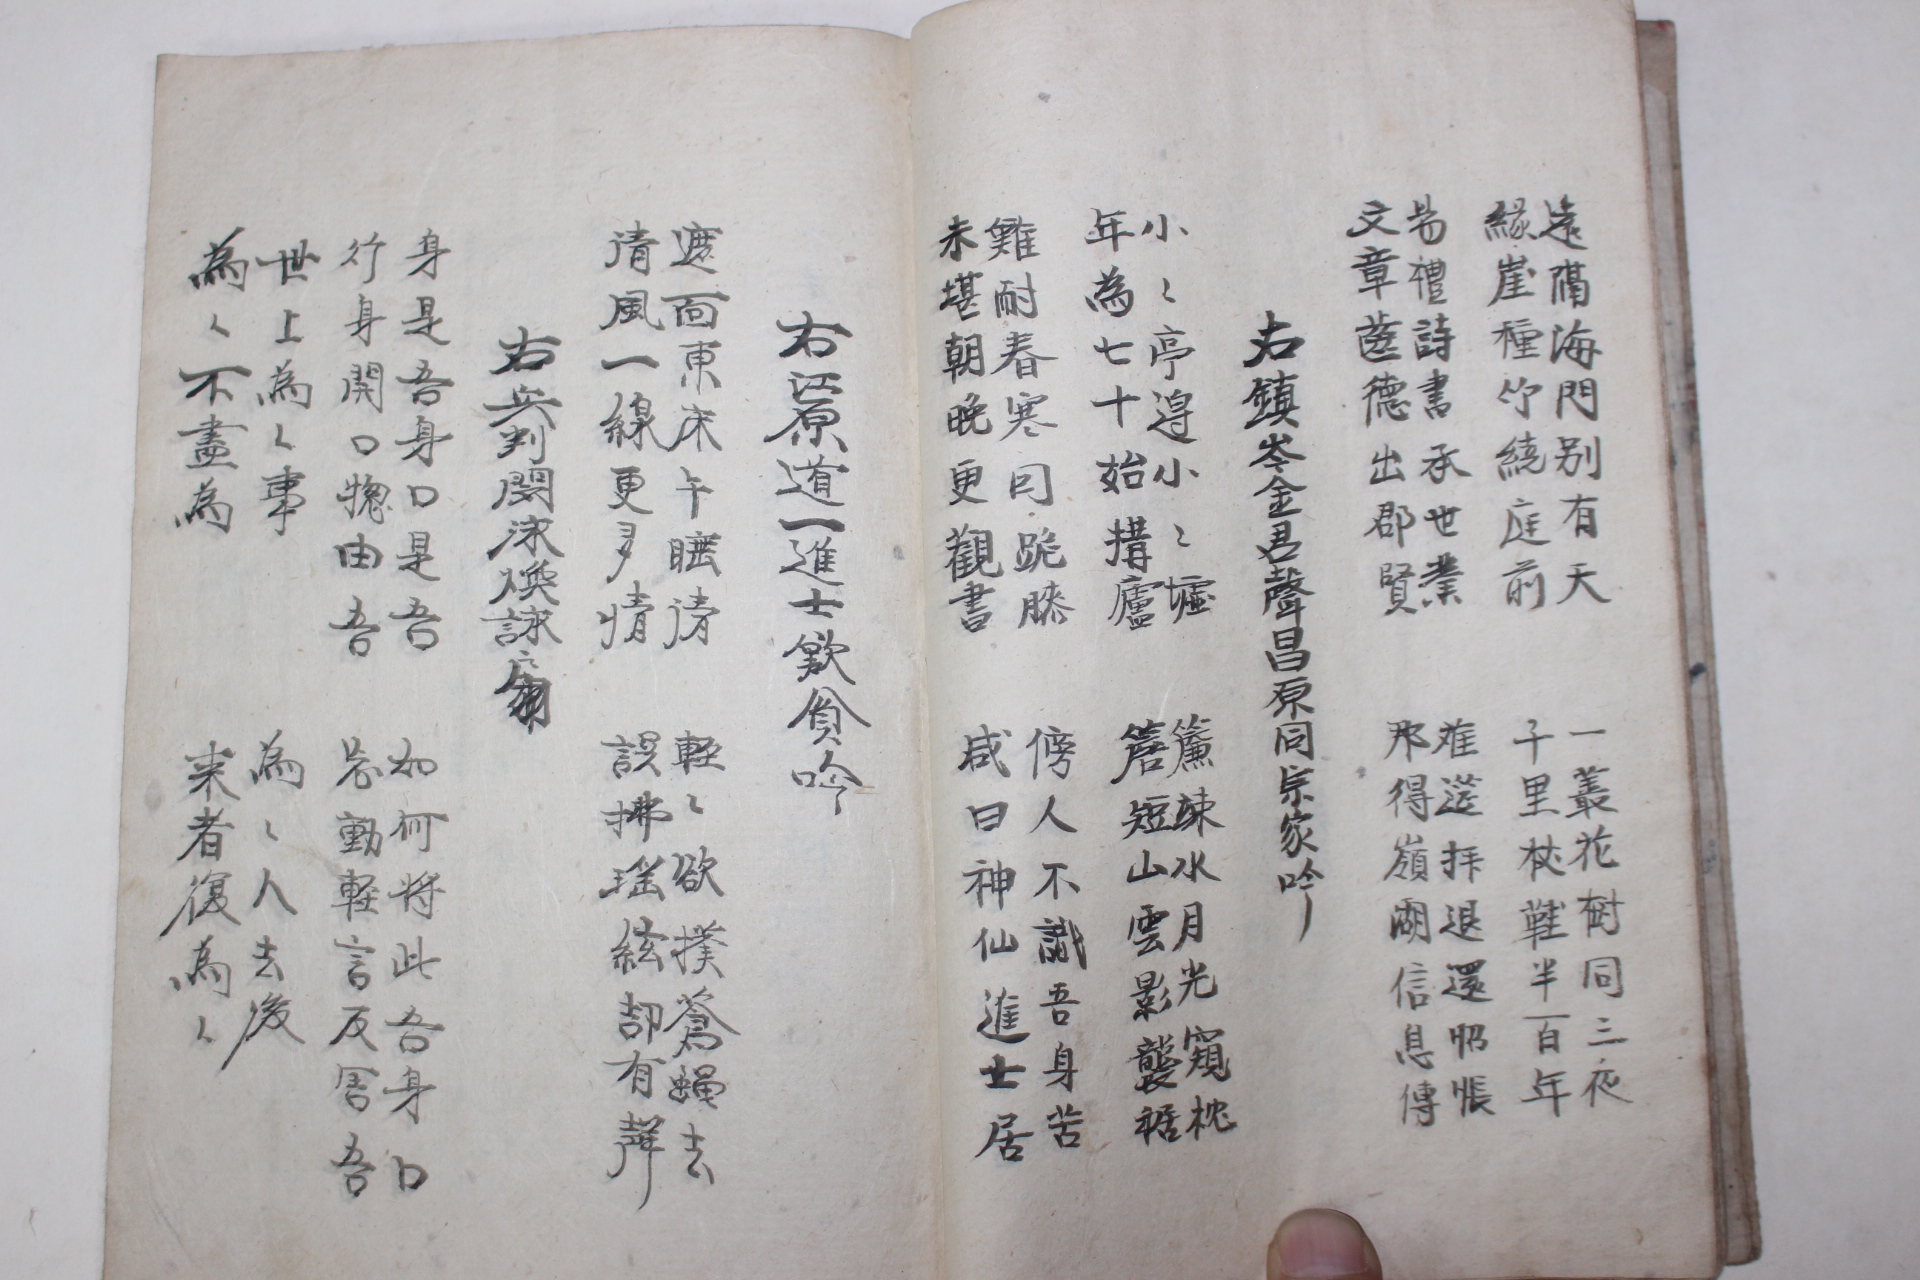 遠隔海門別有天 一叢花樹同三夜
緣崖種竹繞庭前 千里杖鞋半百年
易禮詩書承世業 难拝退還悵
文章齒德出郡賢 那得嶺湖信息傳
右鎮岑金君聲昌原同宗家吟
小〻亭淂小〻墟 簾竦水月光窺枕
年為七十始搆廬 簷短山雲影襲裾
雖耐春寒囘跪膝 傍人不識吾身苦
未堪朝晚更觀書 咸曰神仙進士居
右江原道一進士歎貧吟
遮面東床午睡清 輕〻欲撲蒼蠅去
清風一線更多情 誤拂瑶絃却有聲
右兵判閔泳煥詠扇
身是吾身口是吾 如何將此吾身口
行身開口揔由吾 動軽言反害吾
世上為〻事 為〻人去後
為〻不盡為 来者復為〻